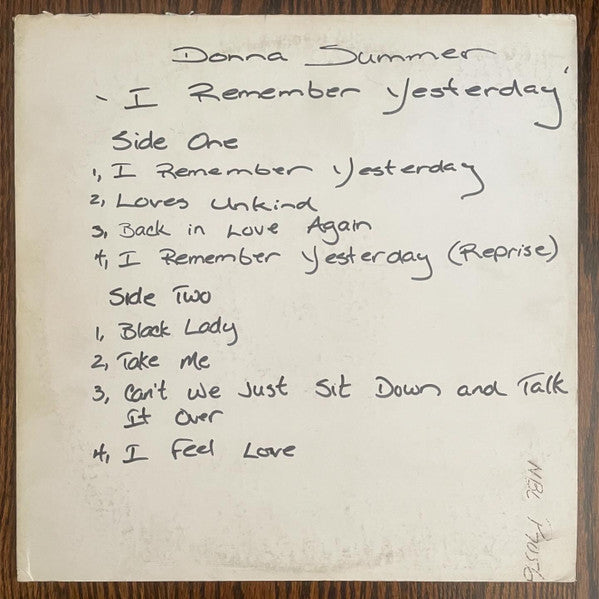 Donna Summer
'I Remember Yesterday'
Side One
1, I Remember Yesterday
2, Loves Unkind
3, Back in Love Again
4, I Remember Yesterday (Reprise)
Side Two
1, Black Lady
2, Take Me
3, Can't We Just Sit Down and Talk
It Over
4, I Feel Love